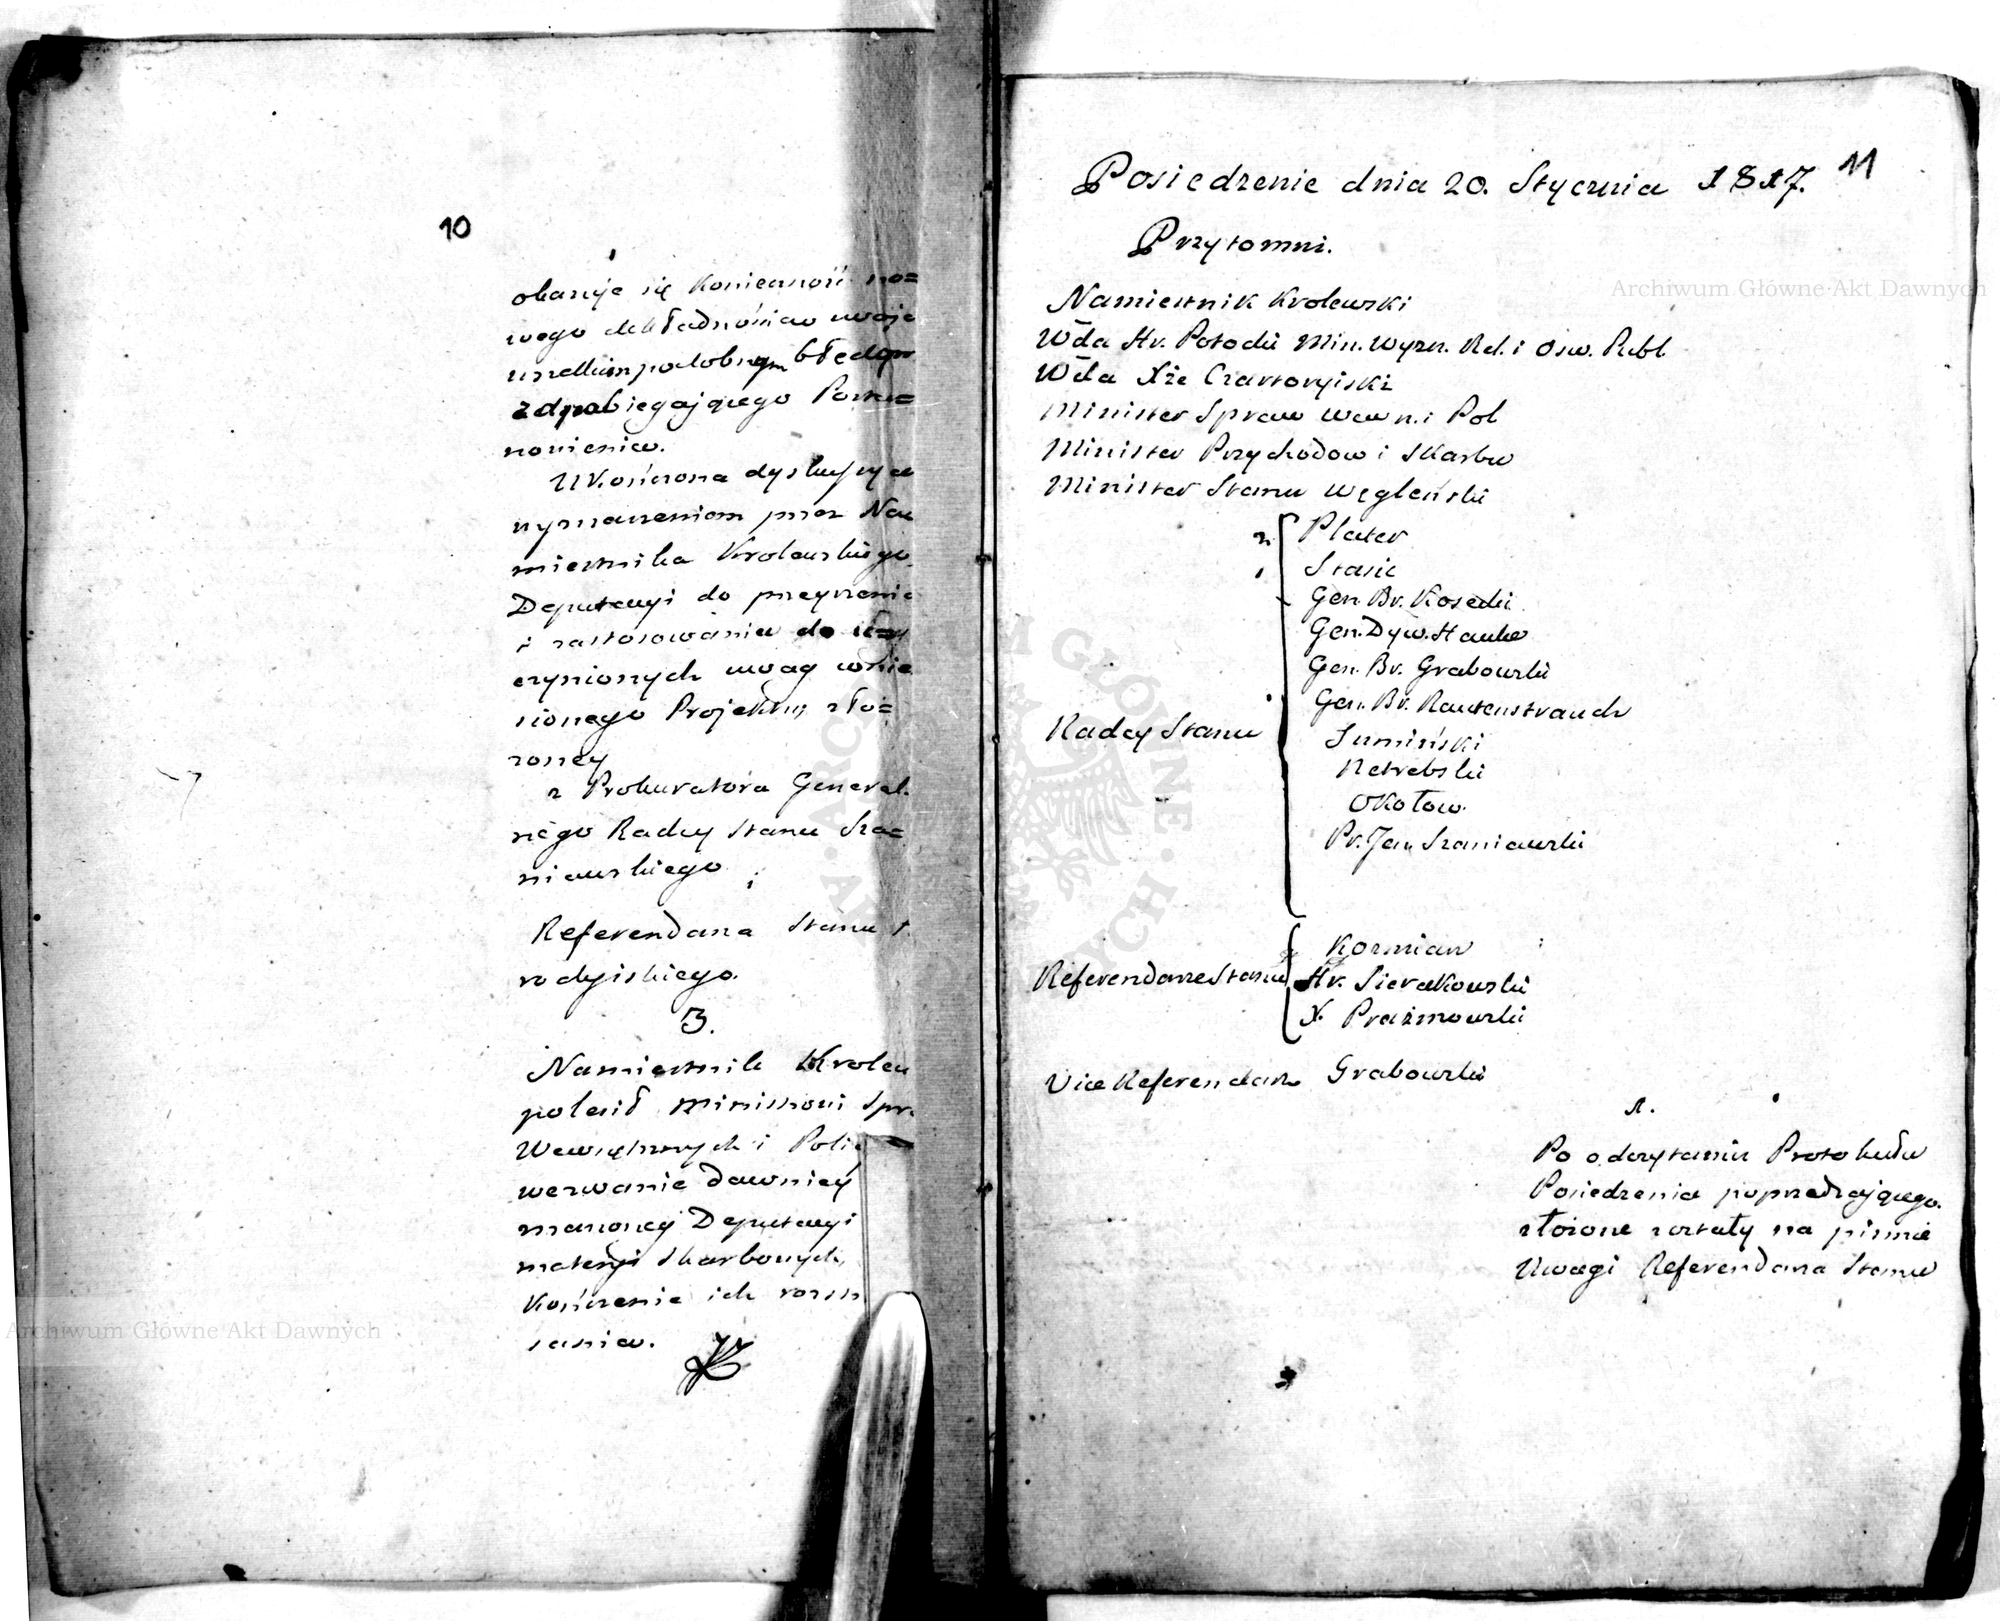 10
okazuje się konieczność no=
wego dokładnością swoją
wszelkim podobnym błędom
zapobiegającego Posta=
nowienia.
Ukończona dyskussya
wyznaczeniem przez Na
miestnika Krolewskiego
Deputacyi do przeyrzenia
i zastosowania do
czynionych uwag wnie
sionego Projektu, zło=
zoney
z Prokuratora General.
nego Radcy Stanu Sza=
niawskiego i
Referendarza Stanu
3.
Namiestnik Krolew
polecił Ministrowi Spr.
Wewnętrznych i Polic
wezwanie dawniey
znaczoney Deputacyi
materyi Skarbowych,
Kończenie ich
sania.
11
Posiedzenie dnia 20. Stycznia 1817.
Przytomni.
Namiestnik Krolewski
Wda Hr. Potocki Min. Wyzn. Rel. i Osw. Publ
Wda Xże Czartoryiski
Minister Spraw Wewn. i Pol
Minister Przychodow i Skarbu
Minister Stanu Węgleński
Radcy Stanu
2. Plater
1 Stasic
Gen. Br. Kosecki
Gen. Dyw. Hauke
Gen. Br. Grabowski
Gen. Br. Rautenstrauch
Sumiński
Netrebski
Okołow.
Pr. Jen. Szaniawski
Referendarze Stanu
Kozmian
Hr. Sierakowski
X. Prażmowski
Vice Referendarz Grabowski
1.
Po odczytaniu Protokułu
Posiedzenia poprzedzającego.
złożone zostały na pismie
Uwagi Referendarza Stanu
Archiwum Główne Akt Dawnych
Archiwum Główne Akt Dawnych